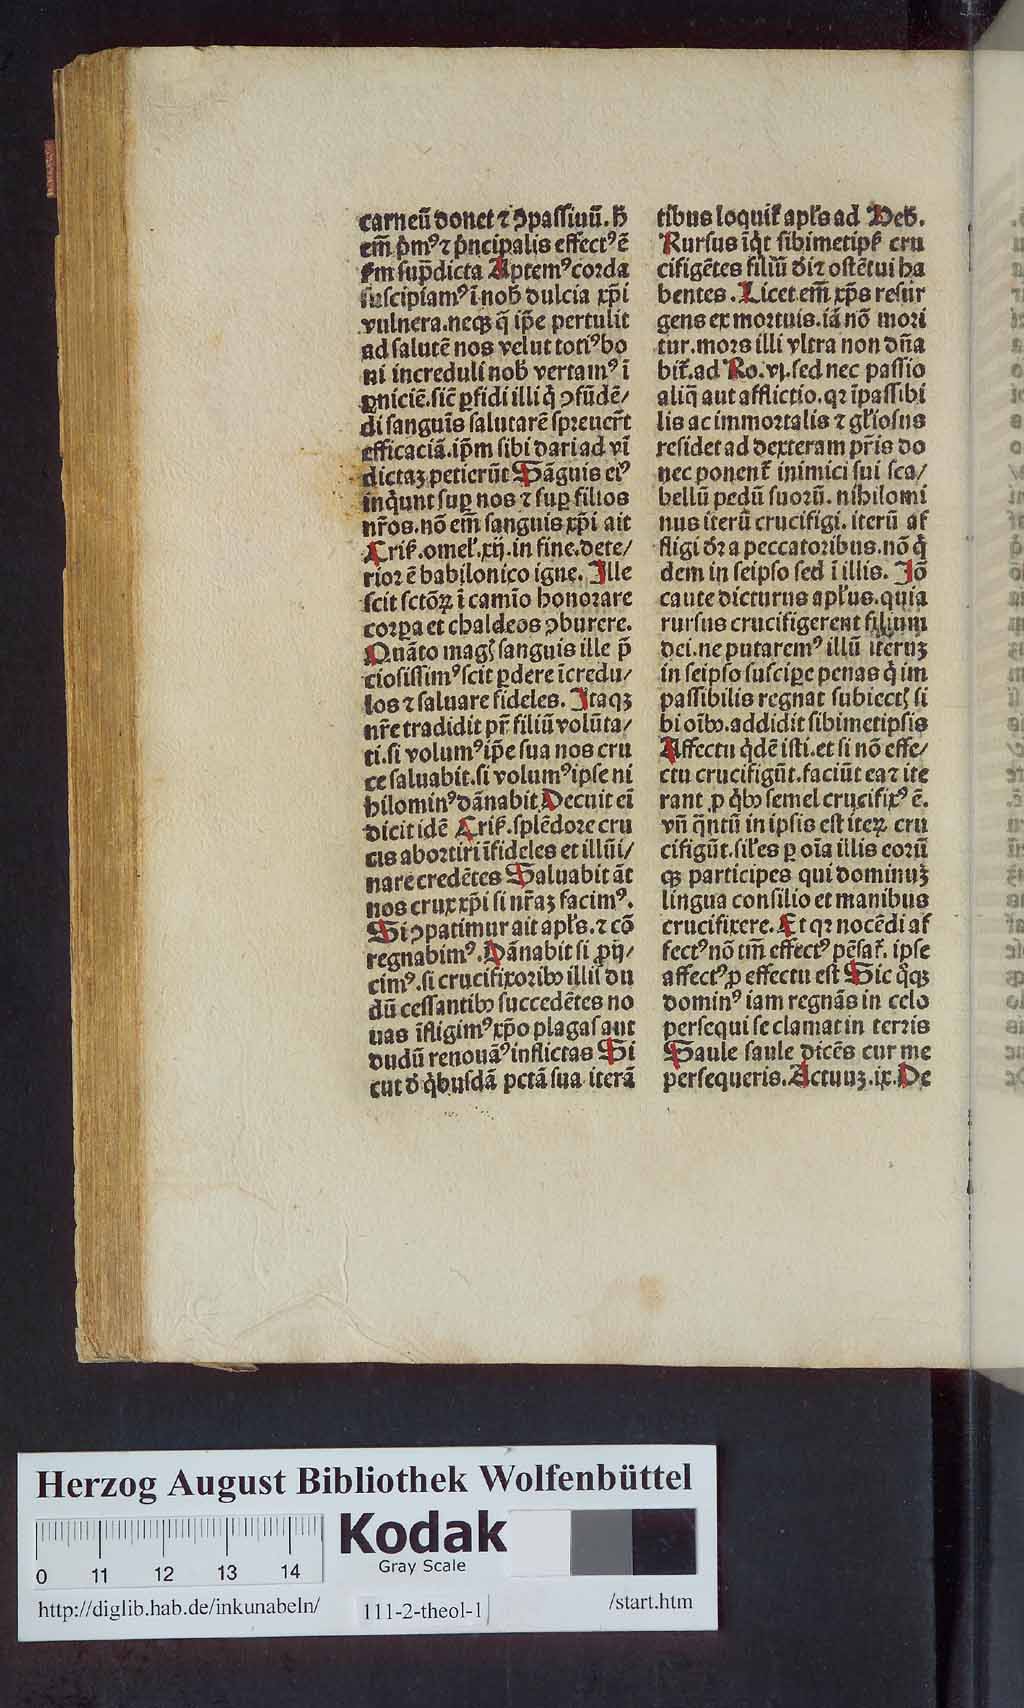 carneū donet ⁊ ꝯpassiuū. h̄
em̄ p̄mꝰ ⁊ p̄ncipalis effectꝰ ē
fm sup̄dicta Aptemꝰ corda
suscipiamꝰ ī nob̄ dulcia xp̄i
vulnera. neqꝫ q̄ ip̄e pertulit
ad salutē nos velut totiꝰ bo
ni increduli nob̄ vertamꝰ ī
ꝑniciē. sic̄ ꝑfidi illi q̇ ꝯfūdē/
di sanguīs salutarē spreuer̄t
efficaciā. ip̄m sibi dari ad vī
dictaꝫ petierūt Sāguis eiꝰ
inq̇unt suꝑ nos ⁊ suꝑ filios
nr̄os. nō em̄ sanguis xp̄i ait
Crisͥ. omel̕. xij. in fine. dete/
rior ē babilonico igne. Ille
scit sctōꝝ ī camīo honorare
corꝑa et chaldeos ꝯburere.
Quāto magꝭ sanguis ille p̄
ciosissimꝰ scit ꝑdere īcredu/
los ⁊ saluare fideles. Itaqꝫ
nr̄e tradidit pr̄ filiū volūta/
ti. si volumꝰ ip̄e sua nos cru
ce saluabit. si volumꝰ ipse ni
hilominꝰ dānabit Decuit eī
dicit idē Crisͥ. splēdore cru
cis abortiri īfideles et illūi/
nare credētes Saluabit āt
nos crux xp̄i si nr̄aꝫ facimꝰ.
Si ꝯpatimur ait apl̄s. ⁊ cō
regnabimꝰ. Dānabit si ꝓij/
cimꝰ. si crucifixoribꝰ illis du
dū cessantibꝰ succedētes no
uas īfligimꝰ xp̄o plagas aut
dudū renouāꝰ inflictas Si
cut d̕ q̇busdā pctā sua iterā
tibus loquit̄ apl̄s ad Heb̄.
Rursus īq̇t sibimetipsͥ cru
cifigētes filiū dei ⁊ ostētui ha
bentes. Licet em̄ xp̄s resur
gens ex mortuis. iā nō mori
tur. mors illi vltra non dn̄a
bit̄. ad Ro. vj. sed nec passio
aliq̄ aut afflictio. qꝛ īpassibi
lis ac immortalis ⁊ gl̄iosus
residet ad dexteram pr̄is do
nec ponent̄ inimici sui sca/
bellū pedū suorū. nihilomi
nus iterū crucifigi. iterū af
fligi dr̄ a peccatoribus. nō q̇
dem in seipso sed ī illis. Iō
caute dicturus apl̄us. quia
rursus crucifigerent filium
dei. ne putaremꝰ illū iteruꝫ
in seipso suscipe penas q̇ im
passibilis regnat subiectꝭ si
bi oībꝰ. addidit sibimetipsis
Affectu q̇dē isti. et si nō effe/
ctu crucifigūt. faciūt ea ⁊ ite
rant ꝓ q̇bꝰ semel crucifixꝰ ē.
vn̄ q̄ntū in ipsis est iteꝝ cru
cifigūt. sil̄es ꝑ oīa illis eorū
qꝫ participes qui dominuꝫ
lingua consilio et manibus
crucifixere. Et qꝛ nocēdi af
fectꝰ nō tm̄ effectꝰ pēsat̄. ipse
affectꝰ ꝓ effectu est Sic q̊qꝫ
dominꝰ iam regnās in celo
persequi se clamat in terris
Saule saule dicēs cur me
persequeris. Actuuꝫ. ix. De
Herzog August Bibliothek Wolfenbüttel
Kodak
Gray Scale
0 11 12 13 14
http://diglib.hab.de/inkunabeln/ 111-2-theol-1 /start.htm